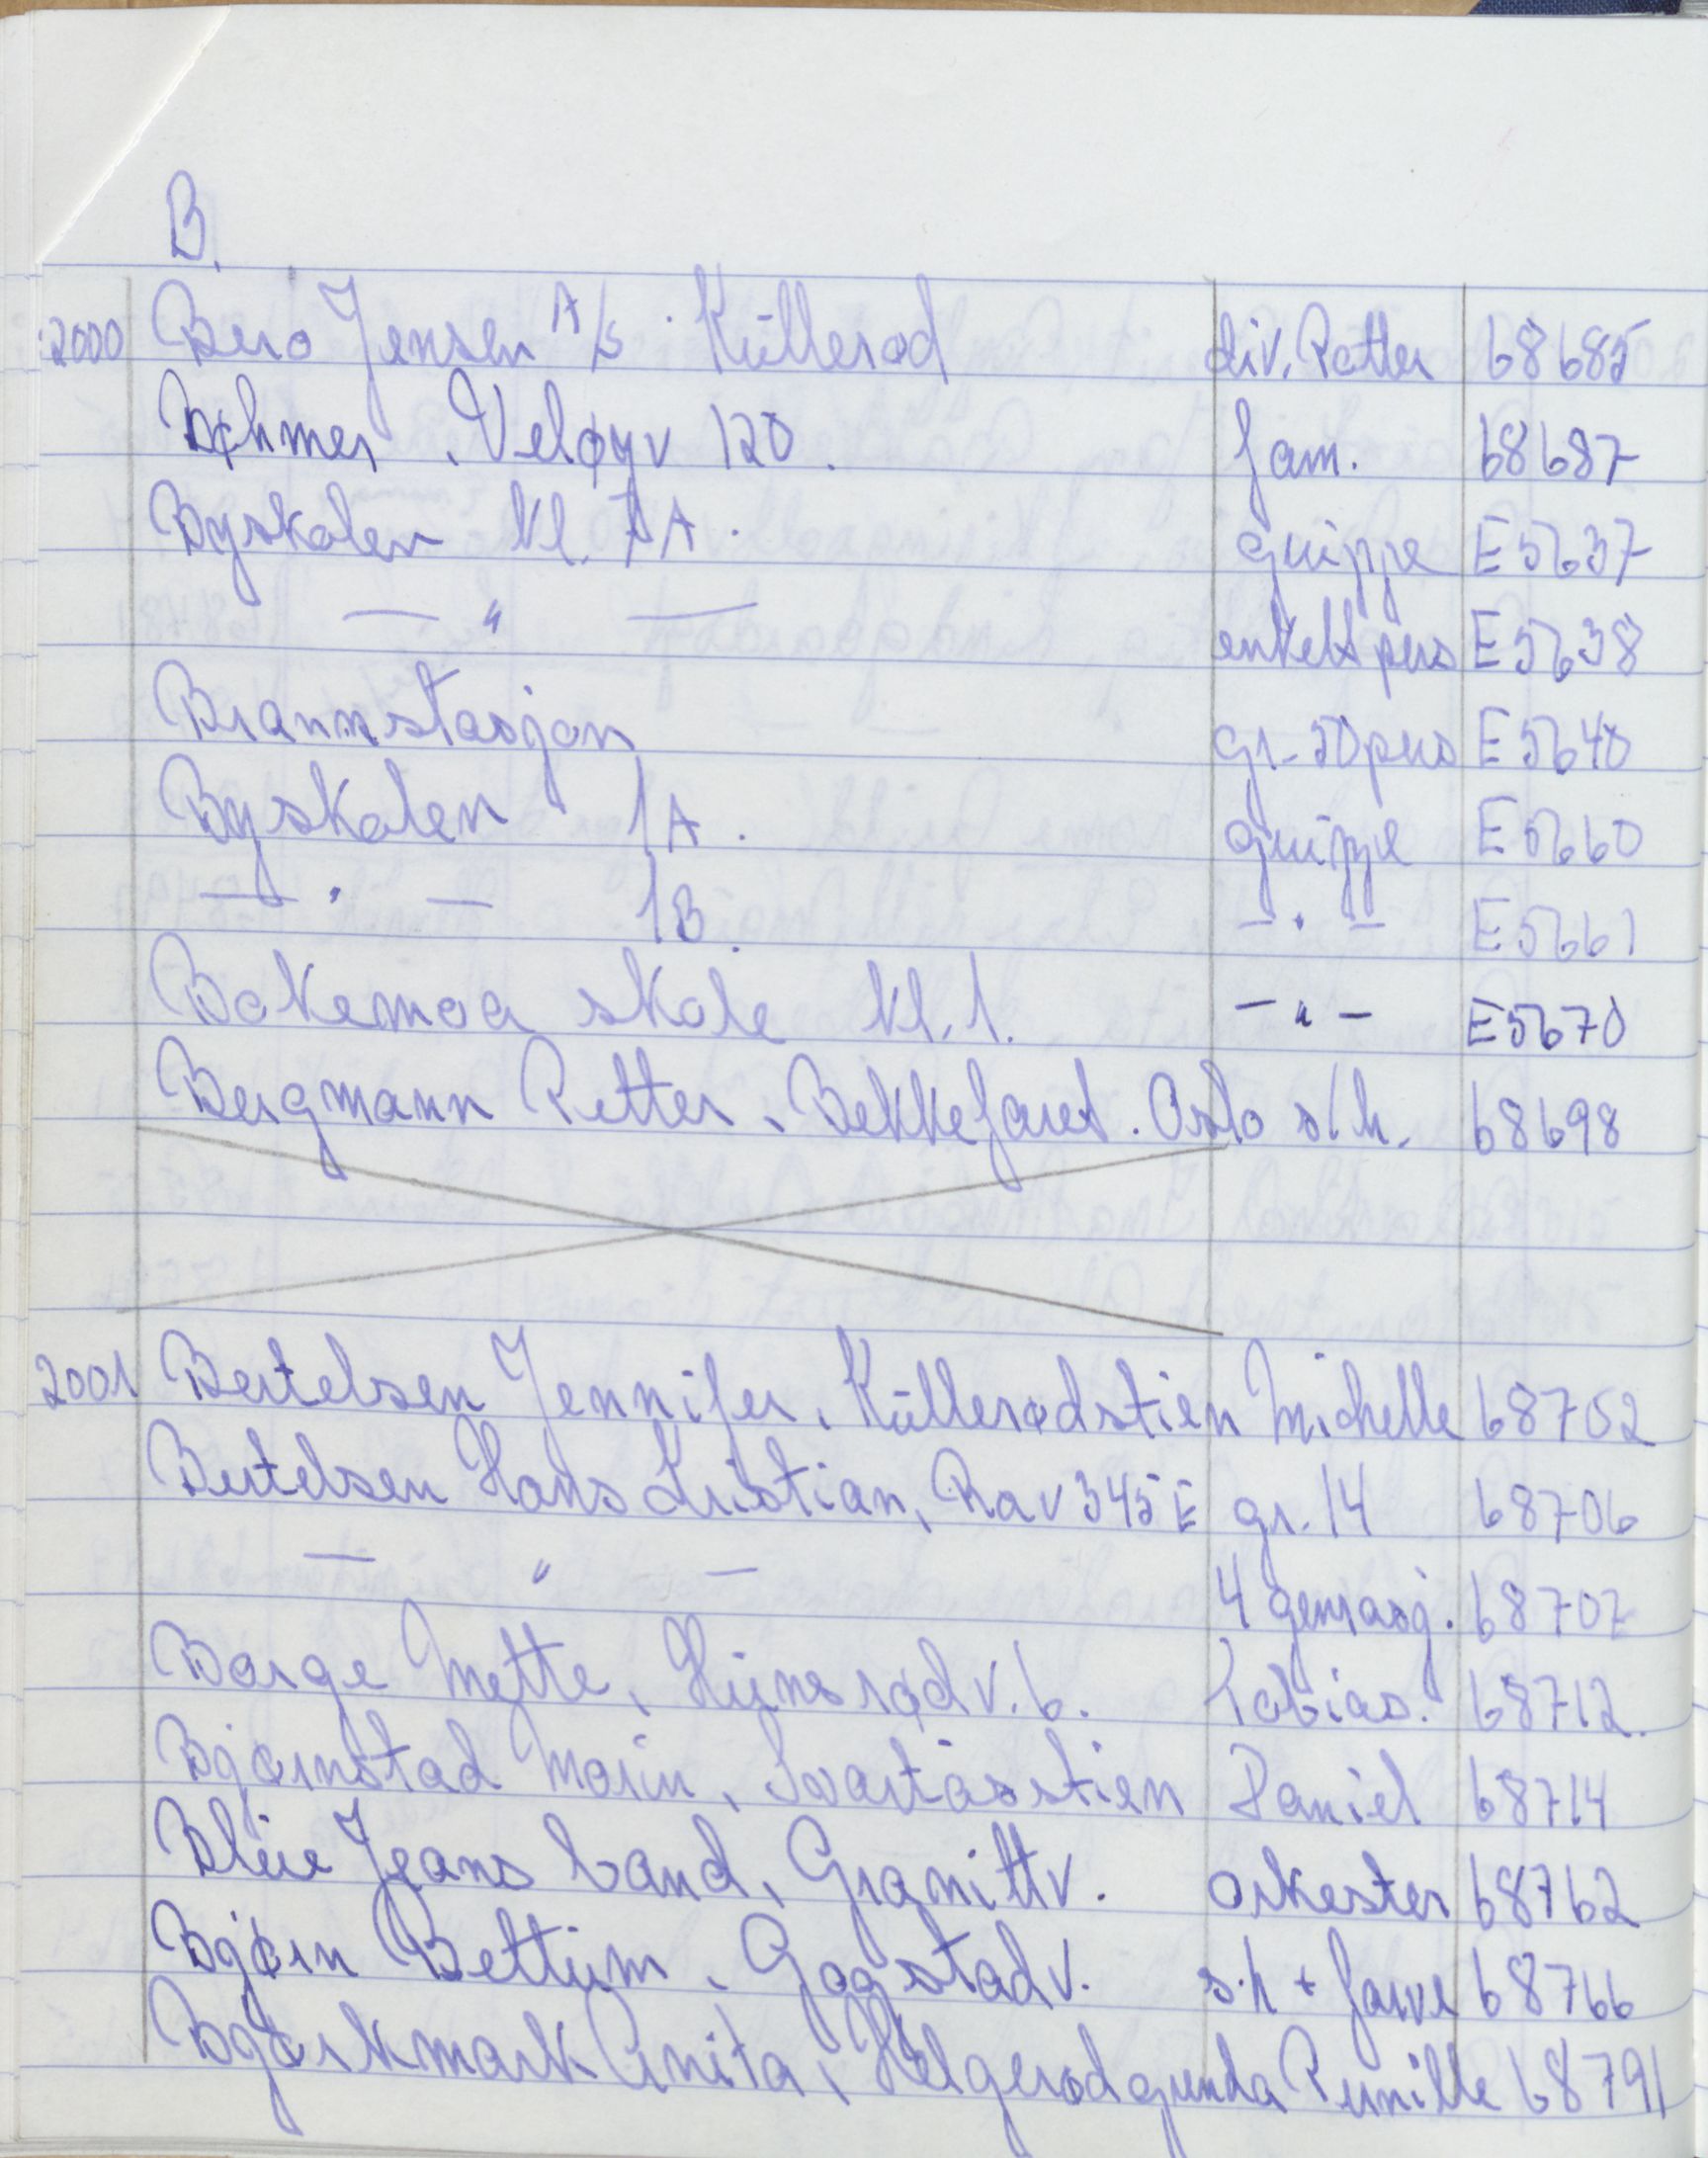 B.
2000 Bero Jensen A/S Küllerød div. Potter 68685
Bøhmer. Veløyv 120. fam. 68687
Byskolen kl. 7A. gruppe E5637
— " — enkelt pers E5638
Brannstasjon gr-50pers E5640
Byskolen 1A. gruppe E5660
— " — 1B. — " — E5661
Bokemoa skole kl. 1. — " — E5670
Bergmann Petter. Bekkefaret. Oslo s/h. 68698
2001 Bertelsen Jennifer. Küllerødstien Michelle 68702
Bertelsen Hans Kristian, Rav 345E gr. 14 68706
— " — 4 genrasj. 68707
Borge Mette, Hünsrødv. 6. Tobias. 68712.
Bjørnstad Marin, Svartåsstien Daniel 68714
Blüe Jeans band, Granittv. orkester 68762
Bjørn Bettüm. Gogstadv. s.h + farve 68766
Bjørkmark Anita, Helgerødgrenda Pernille 68791